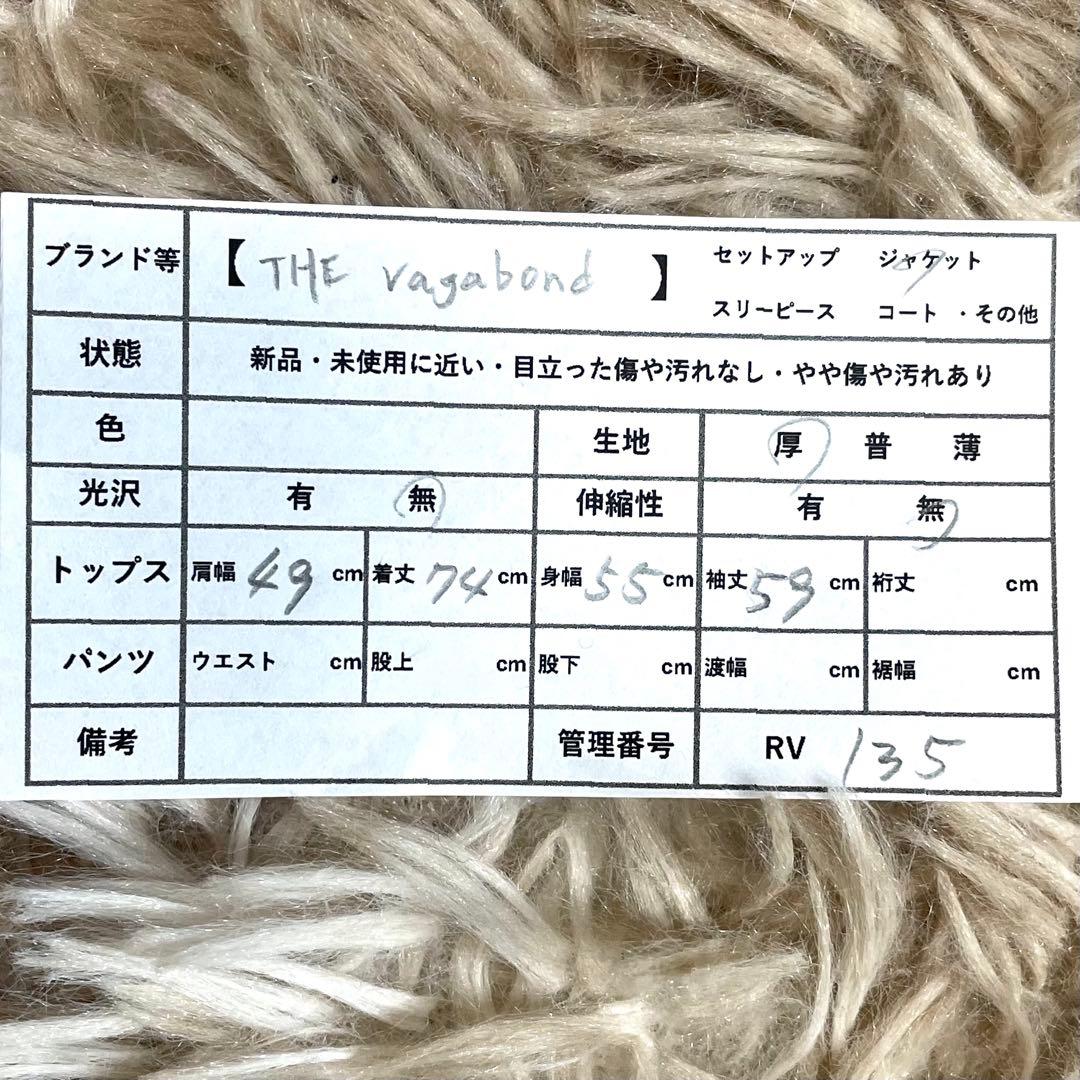 ブランド等 【 THE vagabond 】 セットアップ ジャケット
スリーピース コート ・その他
状態 新品・未使用に近い・目立った傷や汚れなし・やや傷や汚れあり
色 生地 厚 普 薄
光沢 有 無 伸縮性 有 無
トップス 肩幅 49 cm 着丈 74 cm 身幅 55 cm 袖丈 59 cm 裄丈 cm
パンツ ウエスト cm 股上 cm 股下 cm 渡幅 cm 裾幅 cm
備考 管理番号 RV 135